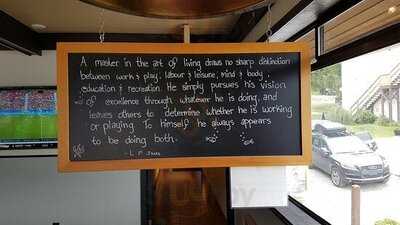 A master in the art of living draws no sharp distinction
between work & play, labour & leisure, mind & body,
education & recreation. He simply pursues his vision
of excellence through whatever he is doing, and
leaves others to determine whether he is working
or playing. To himself he always appears
to be doing both.
- L P Jacks